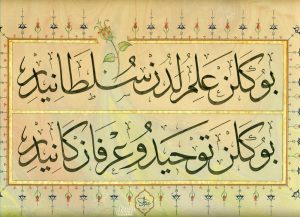 بو گلن علم لدن سلطانیدر
بو گلن توحید و عرفان کانیدر